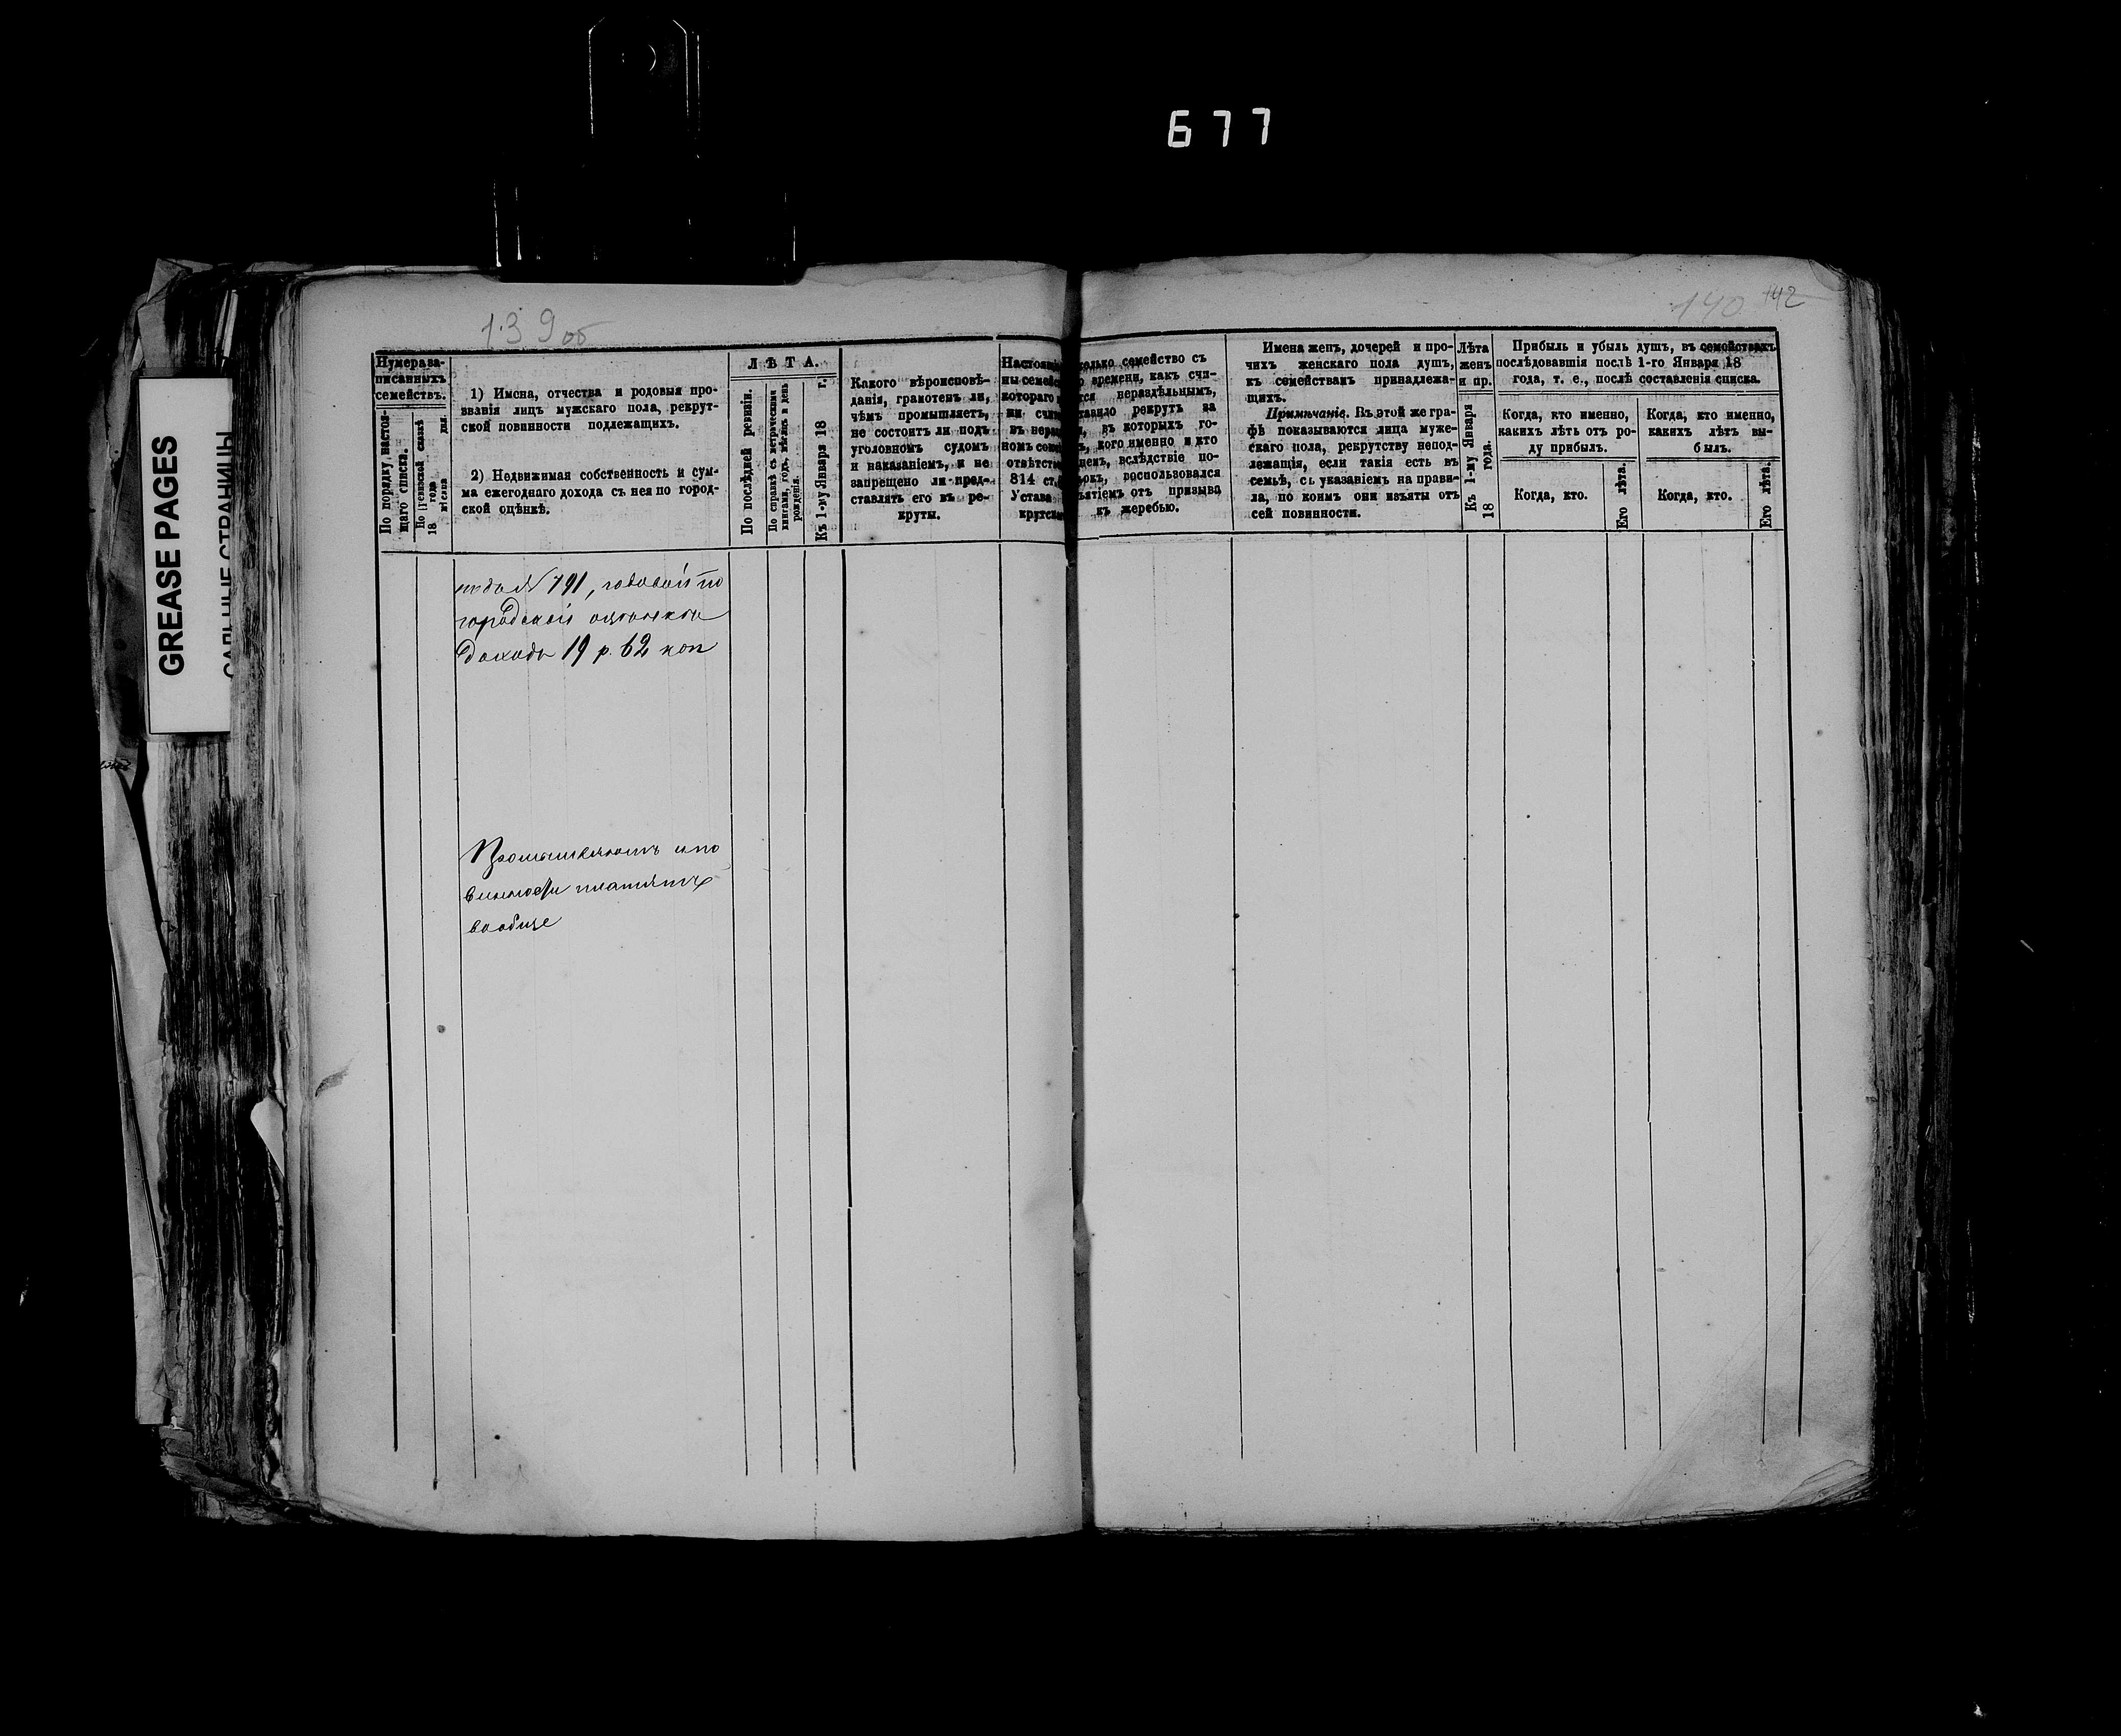 677
GREASE PAGES
САЛЬНЫЕ СТРАНИЦЫ
139 об
140 142
Нумера за-
писанныхъ
семействъ.
По порядку настоя-
щаго списка.
По ревизской сказкѣ
18 года
мѣсяца дня.
1) Имена, отчества и родовыя про-
званія лицъ мужскаго пола, рекрут-
ской повинности подлежащихъ.
2) Недвижимая собственность и сум-
ма ежегоднаго дохода съ нея по город-
ской оцѣнкѣ.
ЛѢТА.
По послѣдней ревизіи.
По справкѣ съ метрическими
книгами, годъ, мѣсяцъ и день
рожденія.
Къ 1-му Января 18 г.
Какого вѣроисповѣ-
данія, грамотенъ ли,
чѣмъ промышляетъ,
не состоитъ ли подъ
уголовномъ судомъ
и наказаніемъ, и не
запрещено ли пред-
ставлять его въ ре-
круты.
Настоящ
ны семейс
котораго
ми счит
въ нераз
номъ сос
отвѣтств
814 ст.
Устава
крутска
колько семейство съ
о времени, какъ счи-
тся нераздѣльнымъ,
тавило рекрутъ за
, въ которыхъ го-
ъ, кого именно и кто
ценъ, вслѣдствіе по-
ьокъ, воспользовался
зъятіемъ отъ призыва
къ жеребью.
Имена женъ, дочерей и про-
чихъ женскаго пола душъ,
къ семействамъ принадлежа-
щихъ.
Примѣчаніе. Въ этой же гра-
фѣ показываются лица муже-
скаго пола, рекрутству непод-
лежащія, если такія есть въ
семьѣ, съ указаніемъ на прави-
ла, по коимъ они изъяты отъ
сей повинности.
Лѣта
женъ
и пр.
Къ 1-му Января
18 года.
Прибыль и убыль душъ, въ семействахъ
послѣдовавшія послѣ 1-го Января 18
года, т. е., послѣ составленія списка.
Когда, кто именно,
какихъ лѣтъ отъ ро-
ду прибылъ.
Когда, кто.
Его лѣта.
Когда, кто именно,
какихъ лѣтъ вы-
былъ.
Когда, кто.
Его лѣта.
подъ № 791, годовой по
городской оцѣнкѣ
доходъ 19 р. 62 коп
Промышляютъ и по
винности платятъ
вообще